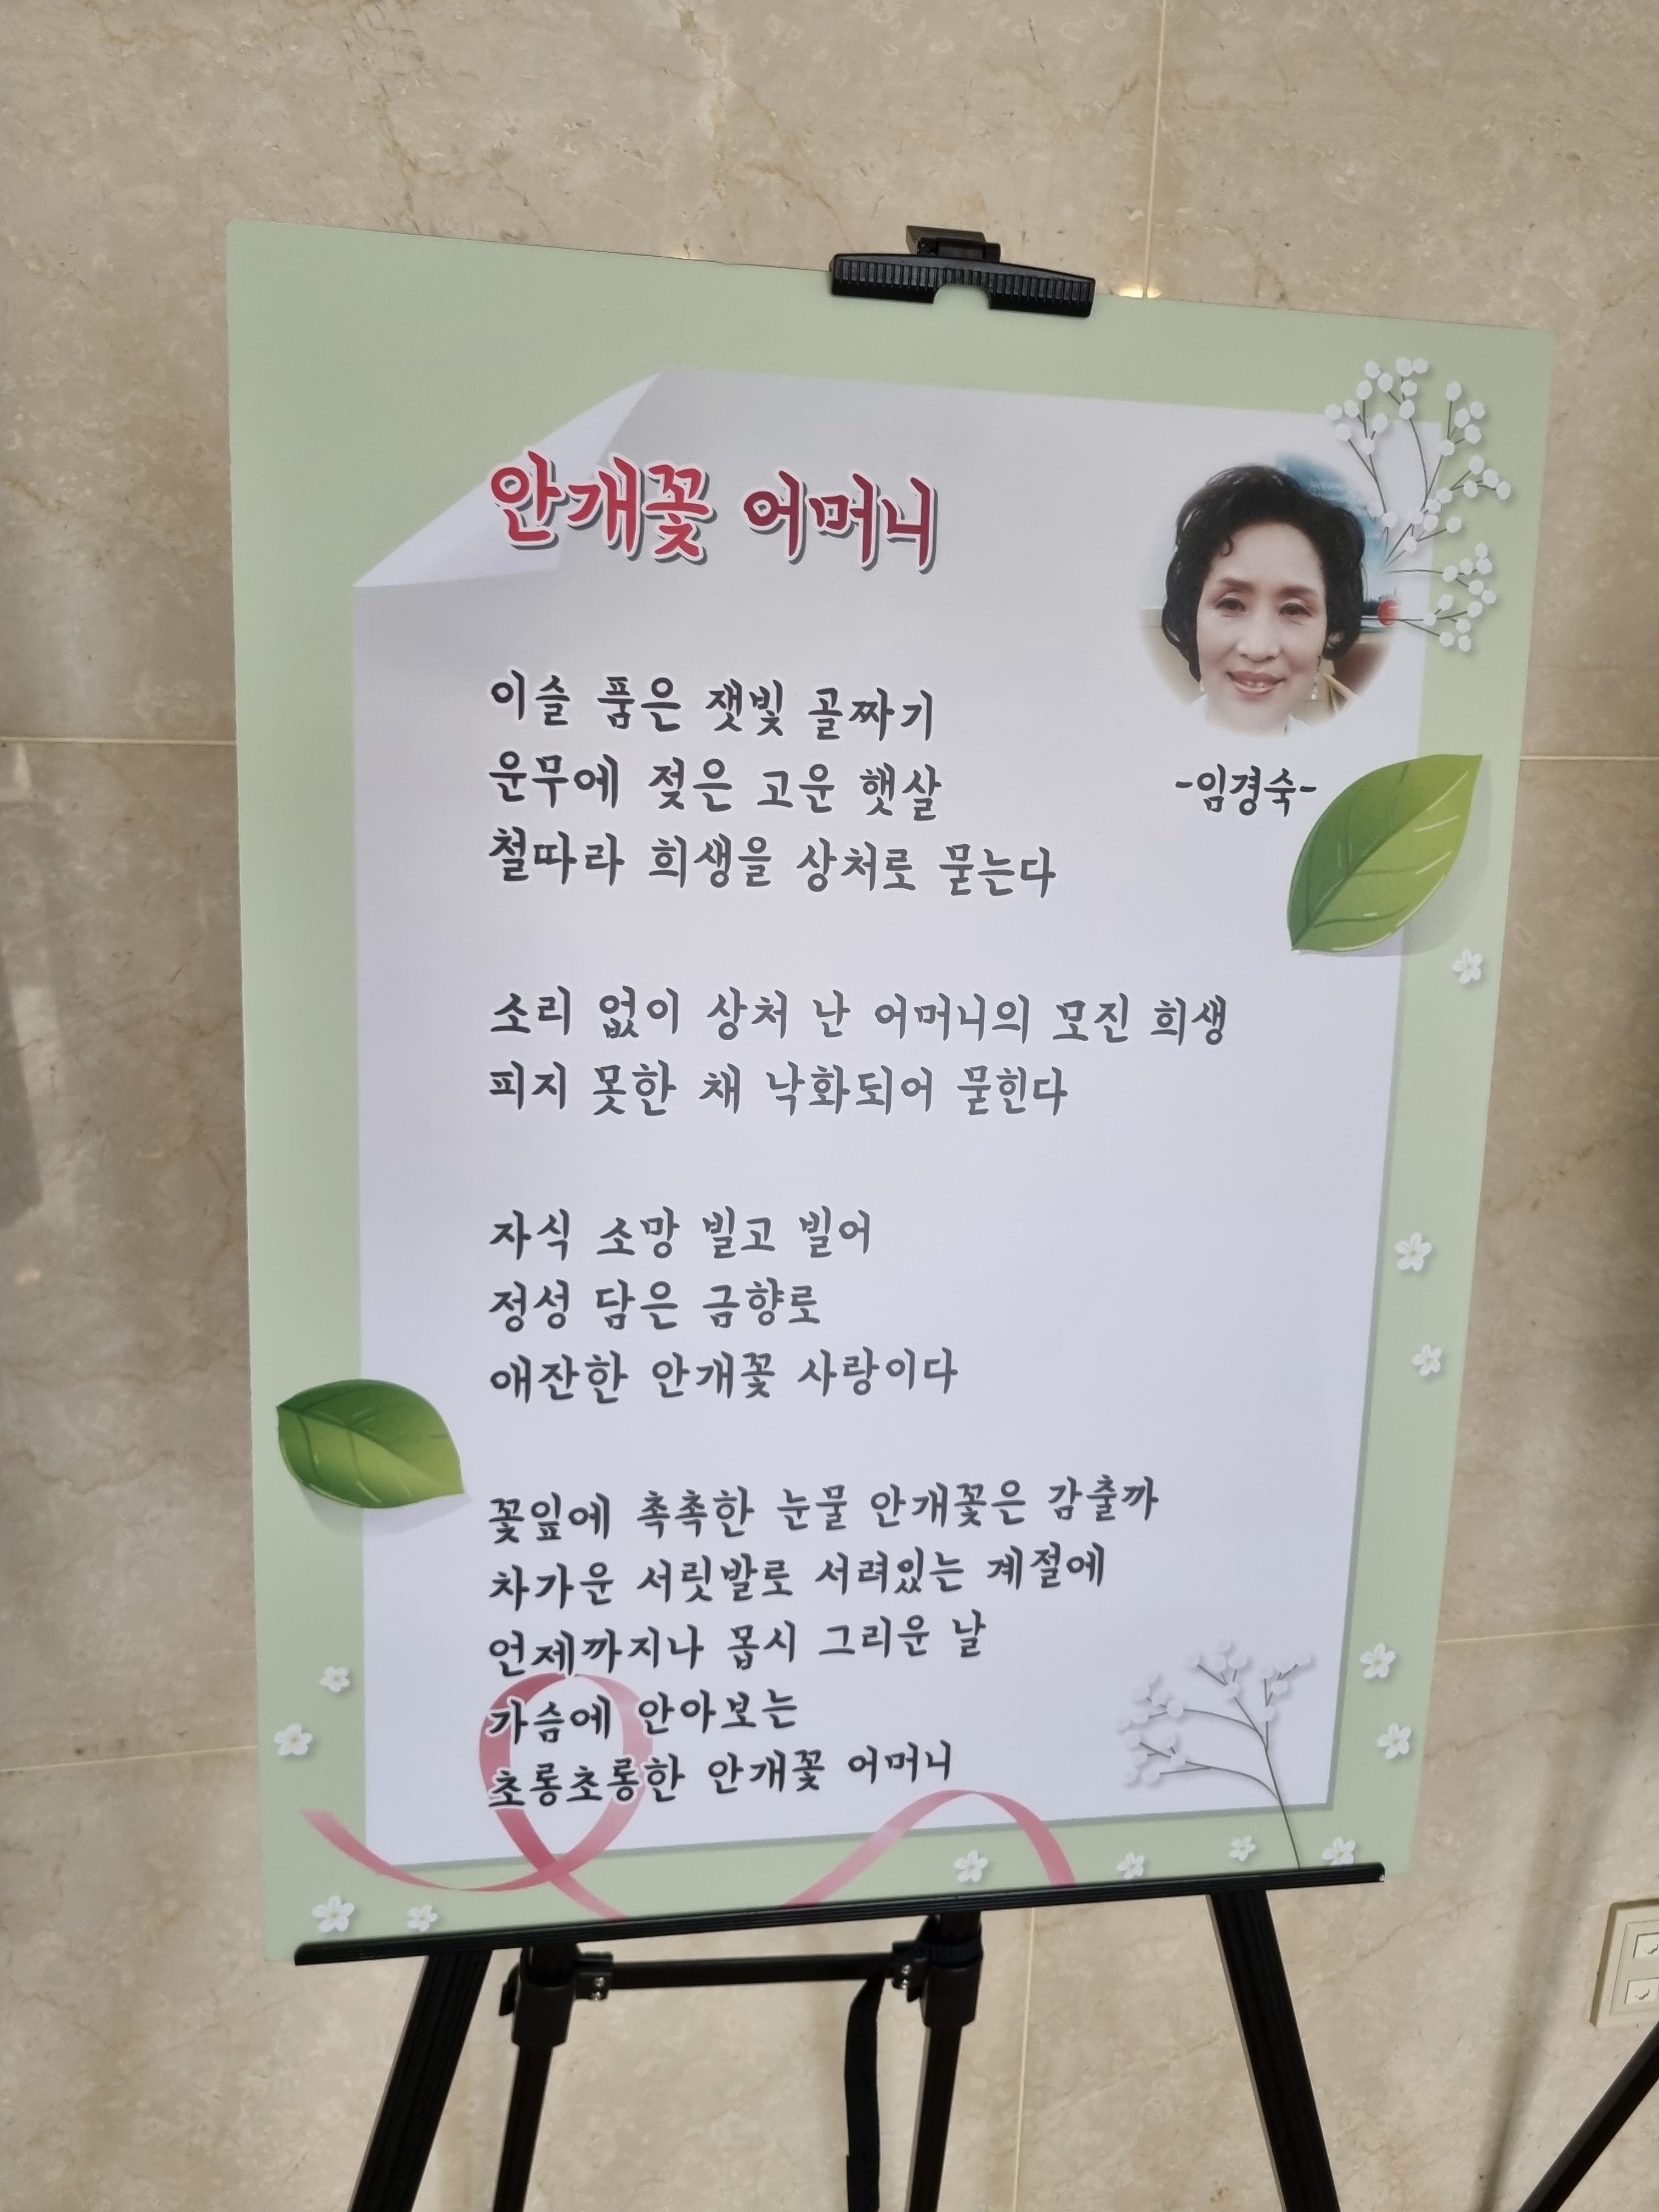 안개꽃 어머니
이슬 품은 잿빛 골짜기
운무에 젖은 고운 햇살
-임경숙-
철따라 희생을 상처로 묻는다
소리 없이 상처 난 어머니의 모진 희생
피지 못한 채 낙화되어 묻힌다
자식 소망 빌고 빌어
정성 담은 금향로
애잔한 안개꽃 사랑이다
꽃잎에 촉촉한 눈물 안개꽃은 감출까
차가운 서릿발로 서려있는 계절에
언제까지나 몹시 그리운 날
가슴에 안아보는
초롱초롱한 안개꽃 어머니